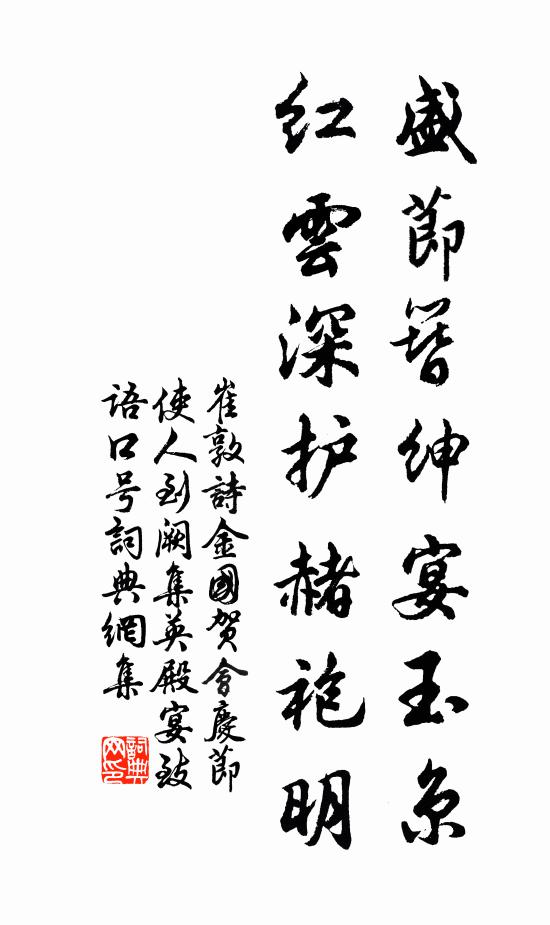 盛節簪紳宴玉京
紅雲深护赭袍明
崔敦詩金國贺會慶節
使人到阙集英殿宴致
语口号詞典網集
詞典網印